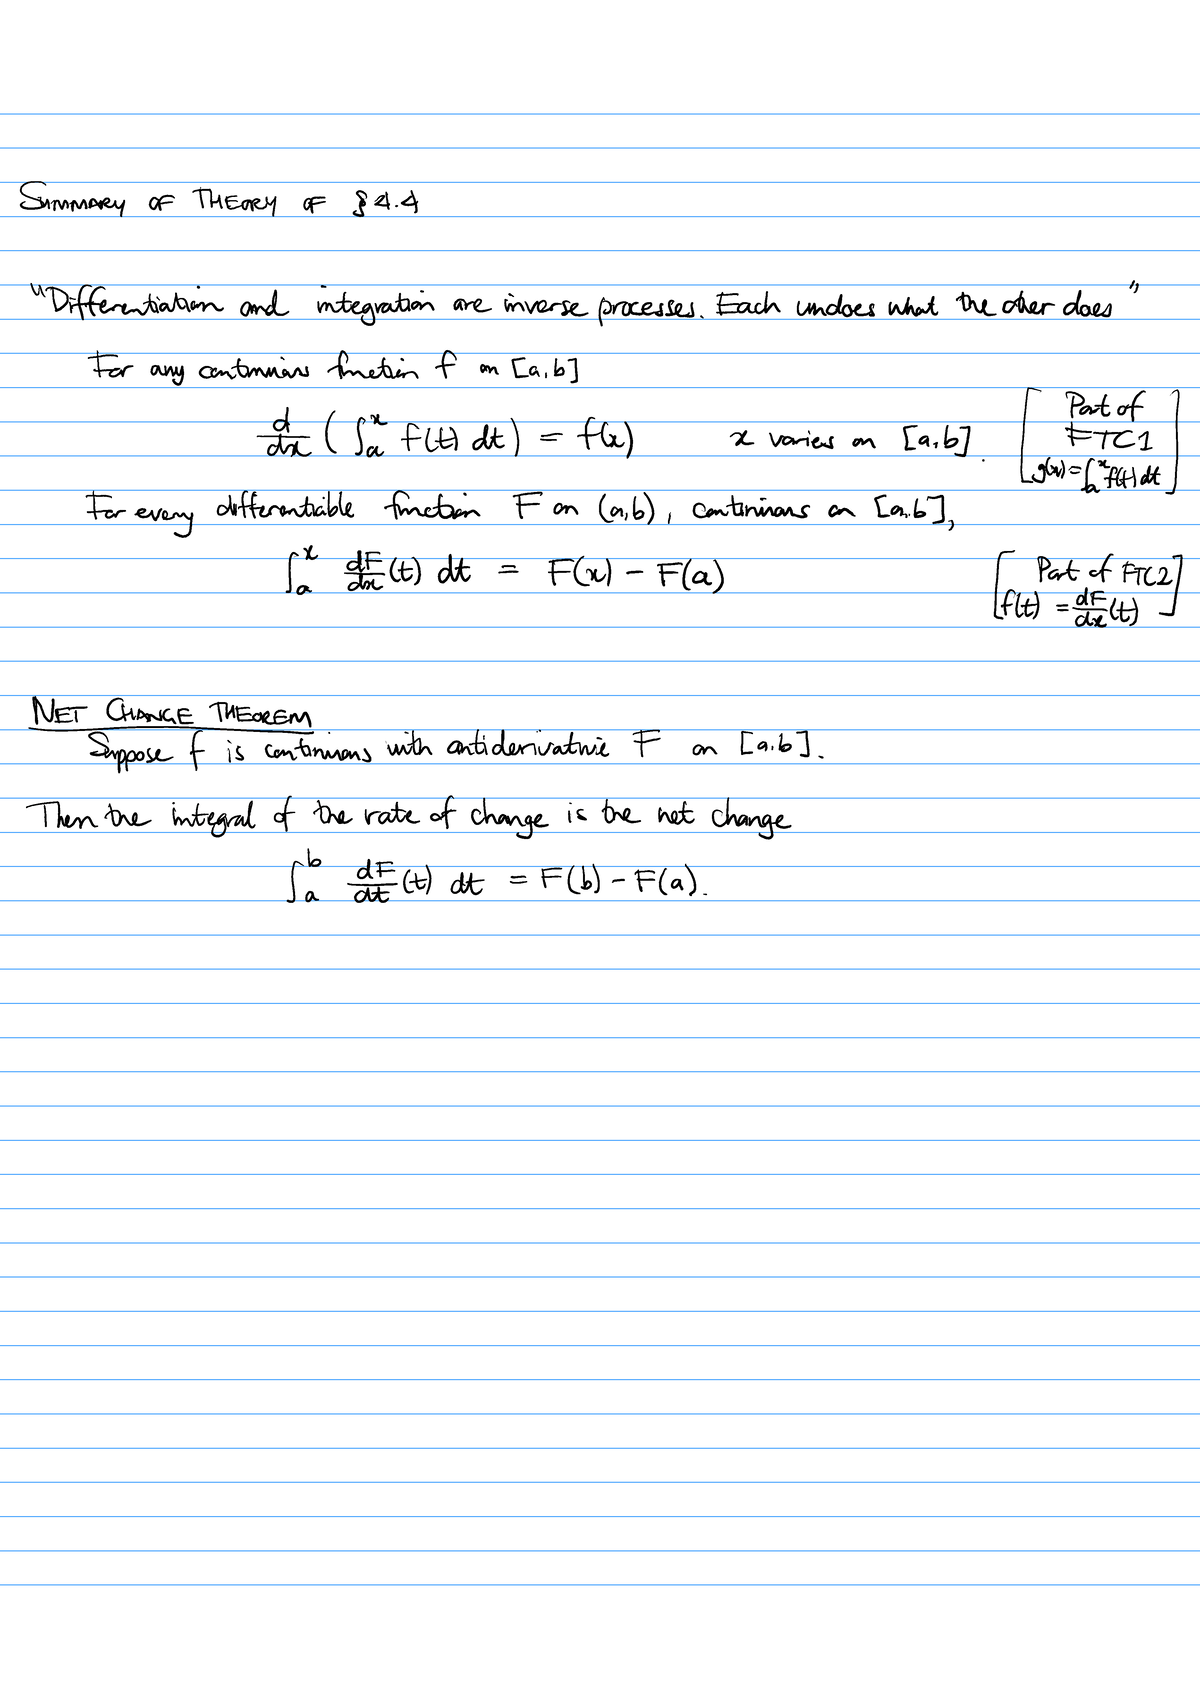 SUMMARY OF THEORY OF § 4.4
"Differentiation and integration are inverse processes. Each undoes what the other does"
For any continuous function f on [a,b]
d/dx ( ∫_a^x f(t) dt ) = f(x) x varies on [a,b].
[ Part of
FTC1
g(x) = ∫_a^x f(t) dt ]
For every differentiable function F on (a,b), continuous on [a,b],
∫_a^x dF/dx (t) dt = F(x) - F(a)
[ Part of FTC2
f(t) = dF/dx (t) ]
NET CHANGE THEOREM
Suppose f is continuous with antiderivative F on [a,b].
Then the integral of the rate of change is the net change
∫_a^b dF/dt (t) dt = F(b) - F(a).